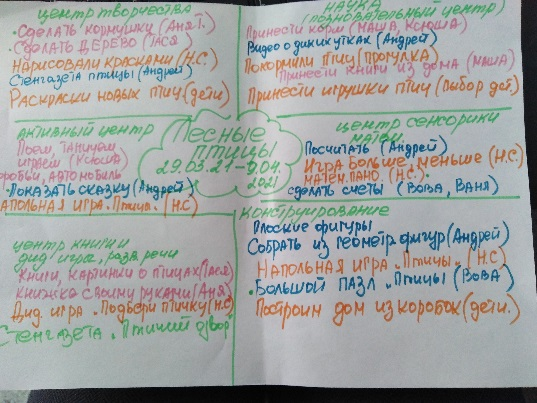 центр творчества
• Сделать кормушки (Аня Т.)
• Сделать дерево (Тася)
Нарисовали красками (Н.С.)
Стенгазета птицы (Андрей)
Раскраски новых птиц (дети)
наука
(познавательный центр)
Принести корм (Маша, Ксюша)
Видео о диких утках (Андрей)
Покормили птиц (прогулка)
Принести книги из дома (Маша)
Принести игрушки птиц (Выбор дет.)
активный центр
Поём, танцуем
играем (Ксюша)
воробьи, автомобиль
• Показать сказку (Андрей)
Напольная игра "Птицы" (Н.С)
Лесные
птицы
29.03.21 – 9.04.
2021
центр сенсорики
Посчитать (Андрей)
Игра Больше, меньше (Н.С)
матем. пано. (Н.С.)
сделать счеты (Вова, Ваня)
центр книги
дид игра, разв речи
Книги, картинки о птицах (Тася)
Книжка своими руками (Аня)
Дид игра "Подбери птичку" (Н.С)
Стенгазета "Птичий двор"
конструирование
Плоские фигуры
Собрать из геометр фигур (Андрей)
Напольная игра "Птицы" (Н.С)
• Большой пазл "Птицы" (Вова)
Построим дом из коробок (дети.)